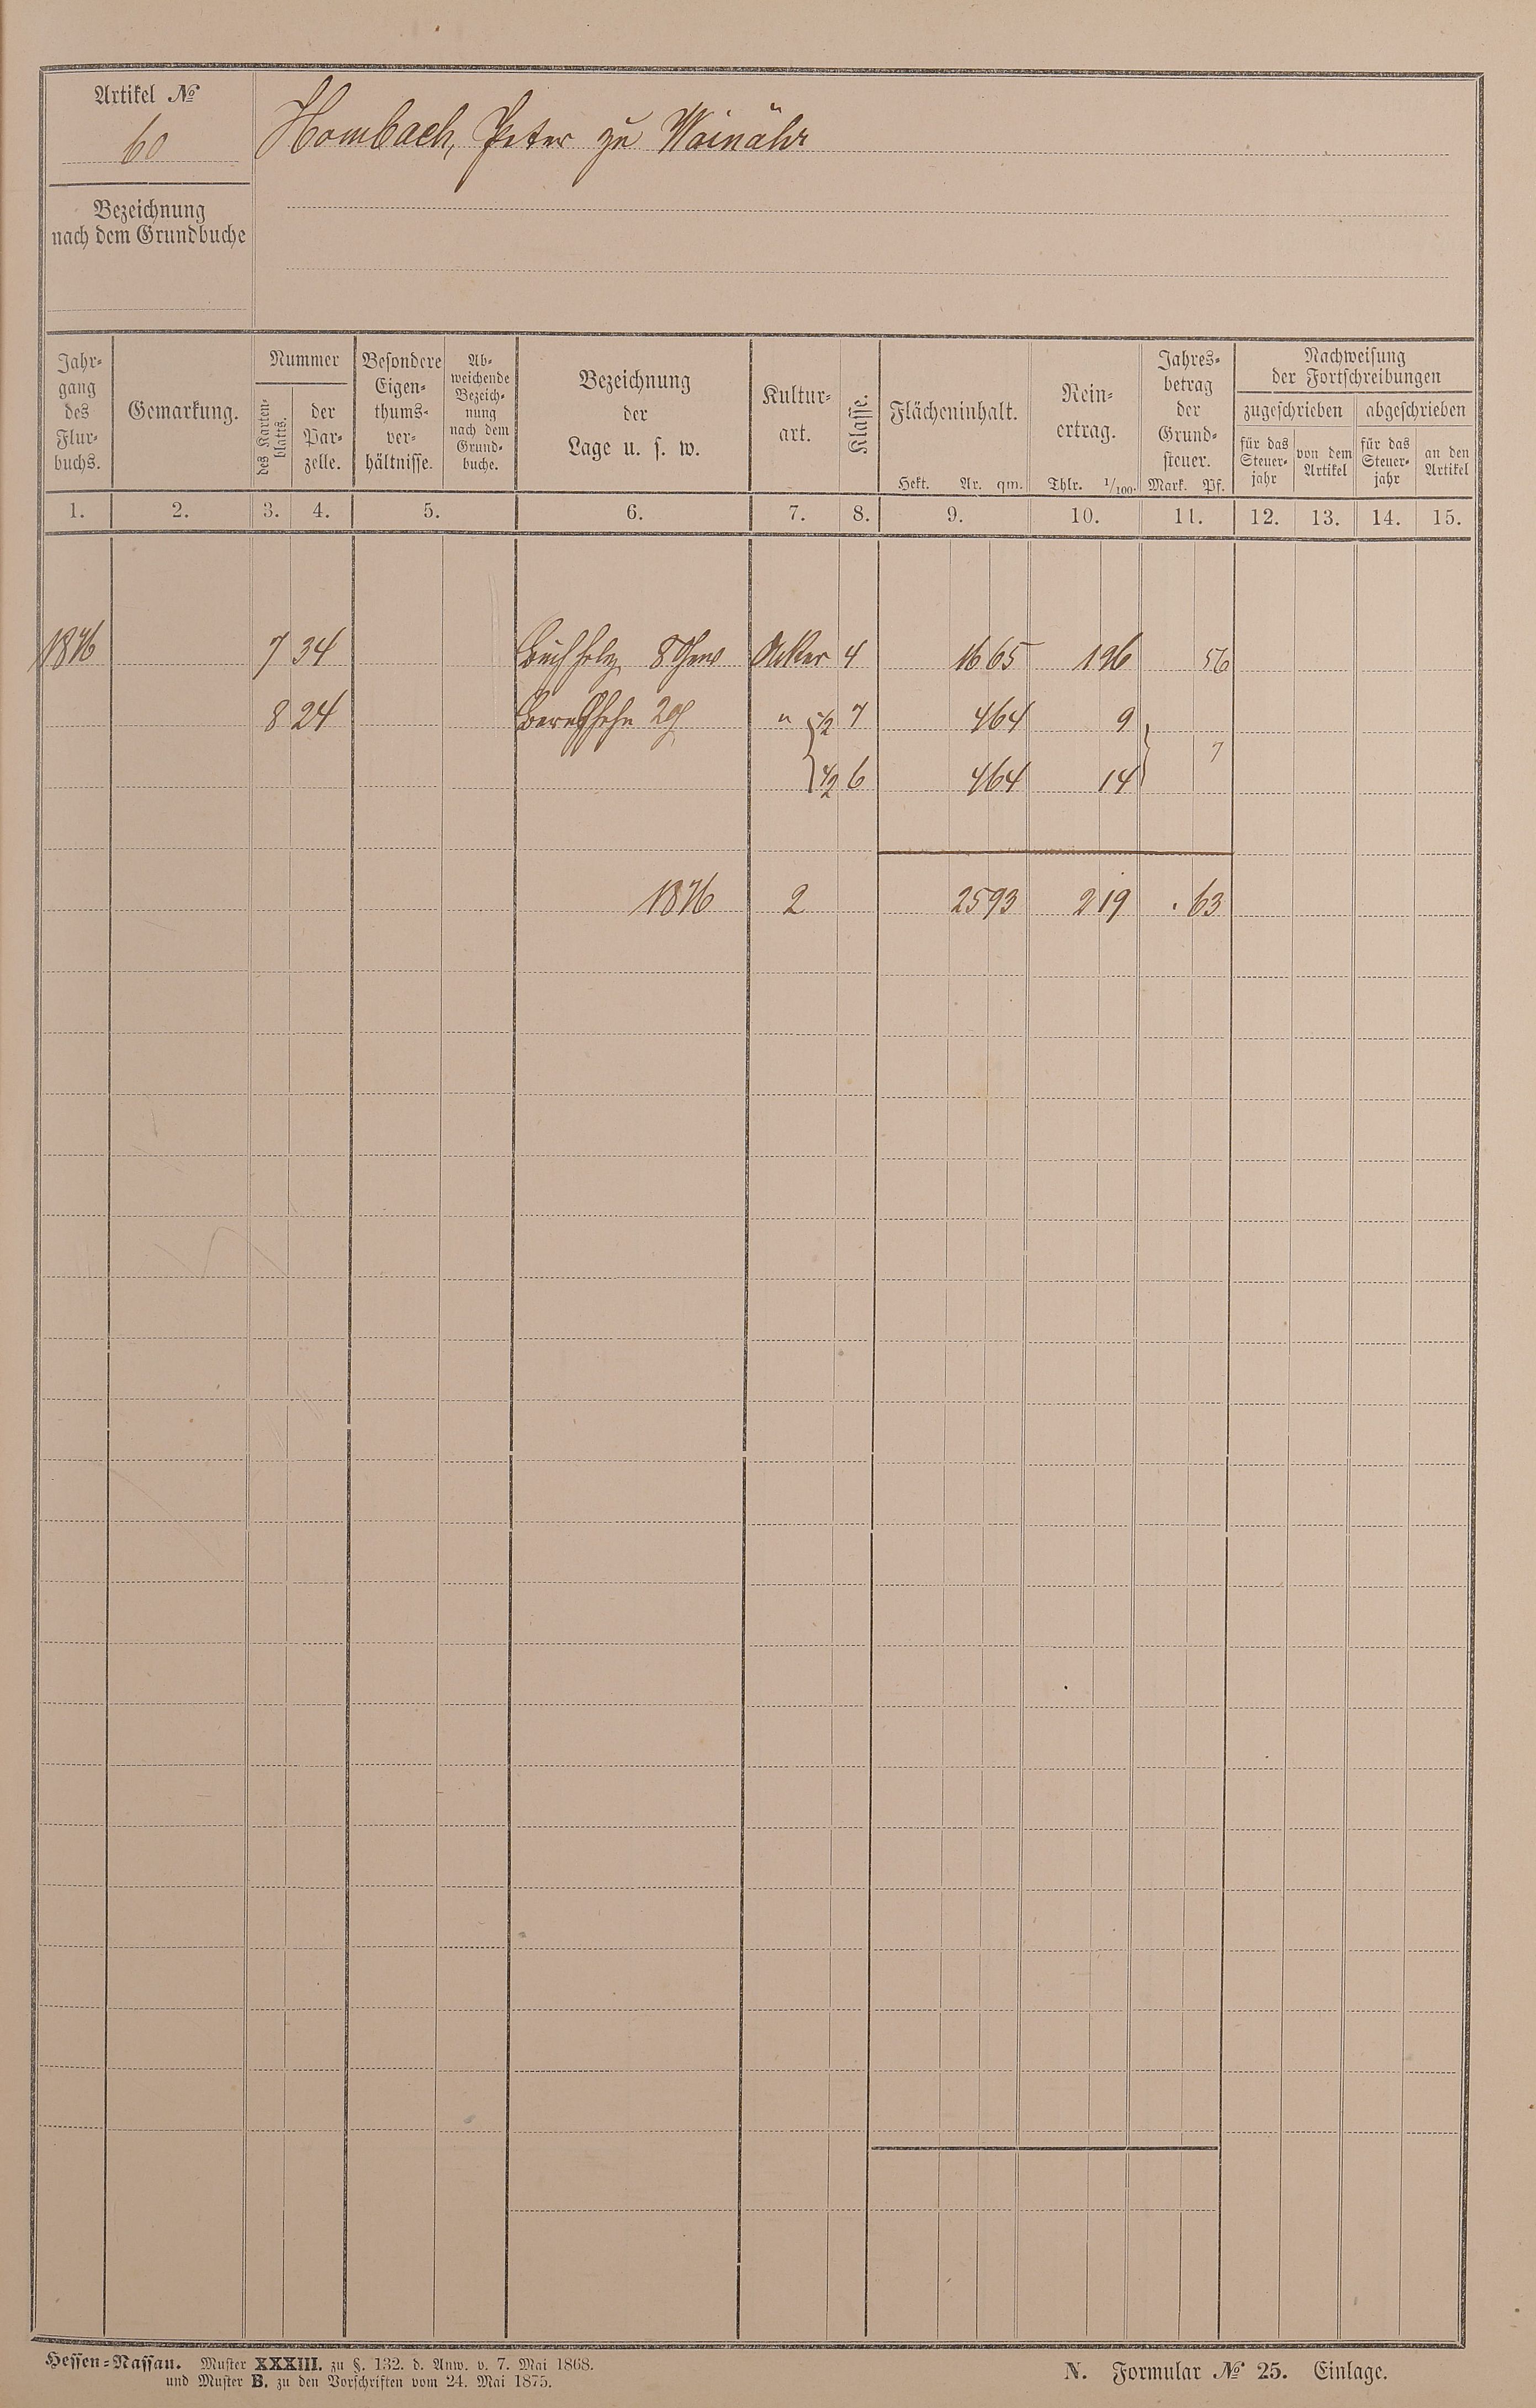 Artikel №
60
Hombach, Peter zu Weinähr
Bezeichnung
nach dem Grundbuche
Jahr-
gang
des
Flur-
buchs.
Gemarkung.
Nummer
des Karten-
blatts.
der
Par-
zelle.
Besondere
Eigen-
thums-
ver-
hältnisse.
Ab-
weichende
Bezeich-
nung
nach dem
Grund-
buche.
Bezeichnung
der
Lage u. s. w.
Kultur-
art.
Klasse.
Flächeninhalt.
Hekt. Ar. qm.
Rein-
ertrag.
Thlr. 1/100.
Jahres-
betrag
der
Grund-
steuer.
Mark. Pf.
Nachweisung
der Fortschreibungen
zugeschrieben abgeschrieben
für das
Steuer-
jahr
von dem
Artikel
für das
Steuer-
jahr
an den
Artikel
1. 2. 3. 4. 5. 6. 7. 8. 9. 10. 11. 12. 13. 14. 15.
1876 7 34 Buchholz 8 Acker 4 16 65 1 96 56
8 24 " 1/2 7 4 64 9
1/2 6 4 64 14 7
1876 2 25 93 2 19 . 63
Hessen-Nassau. Muster XXXIII. zu §. 132. d. Anw. v. 7. Mai 1868.
und Muster B. zu den Vorschriften vom 24. Mai 1875.
N. Formular № 25. Einlage.